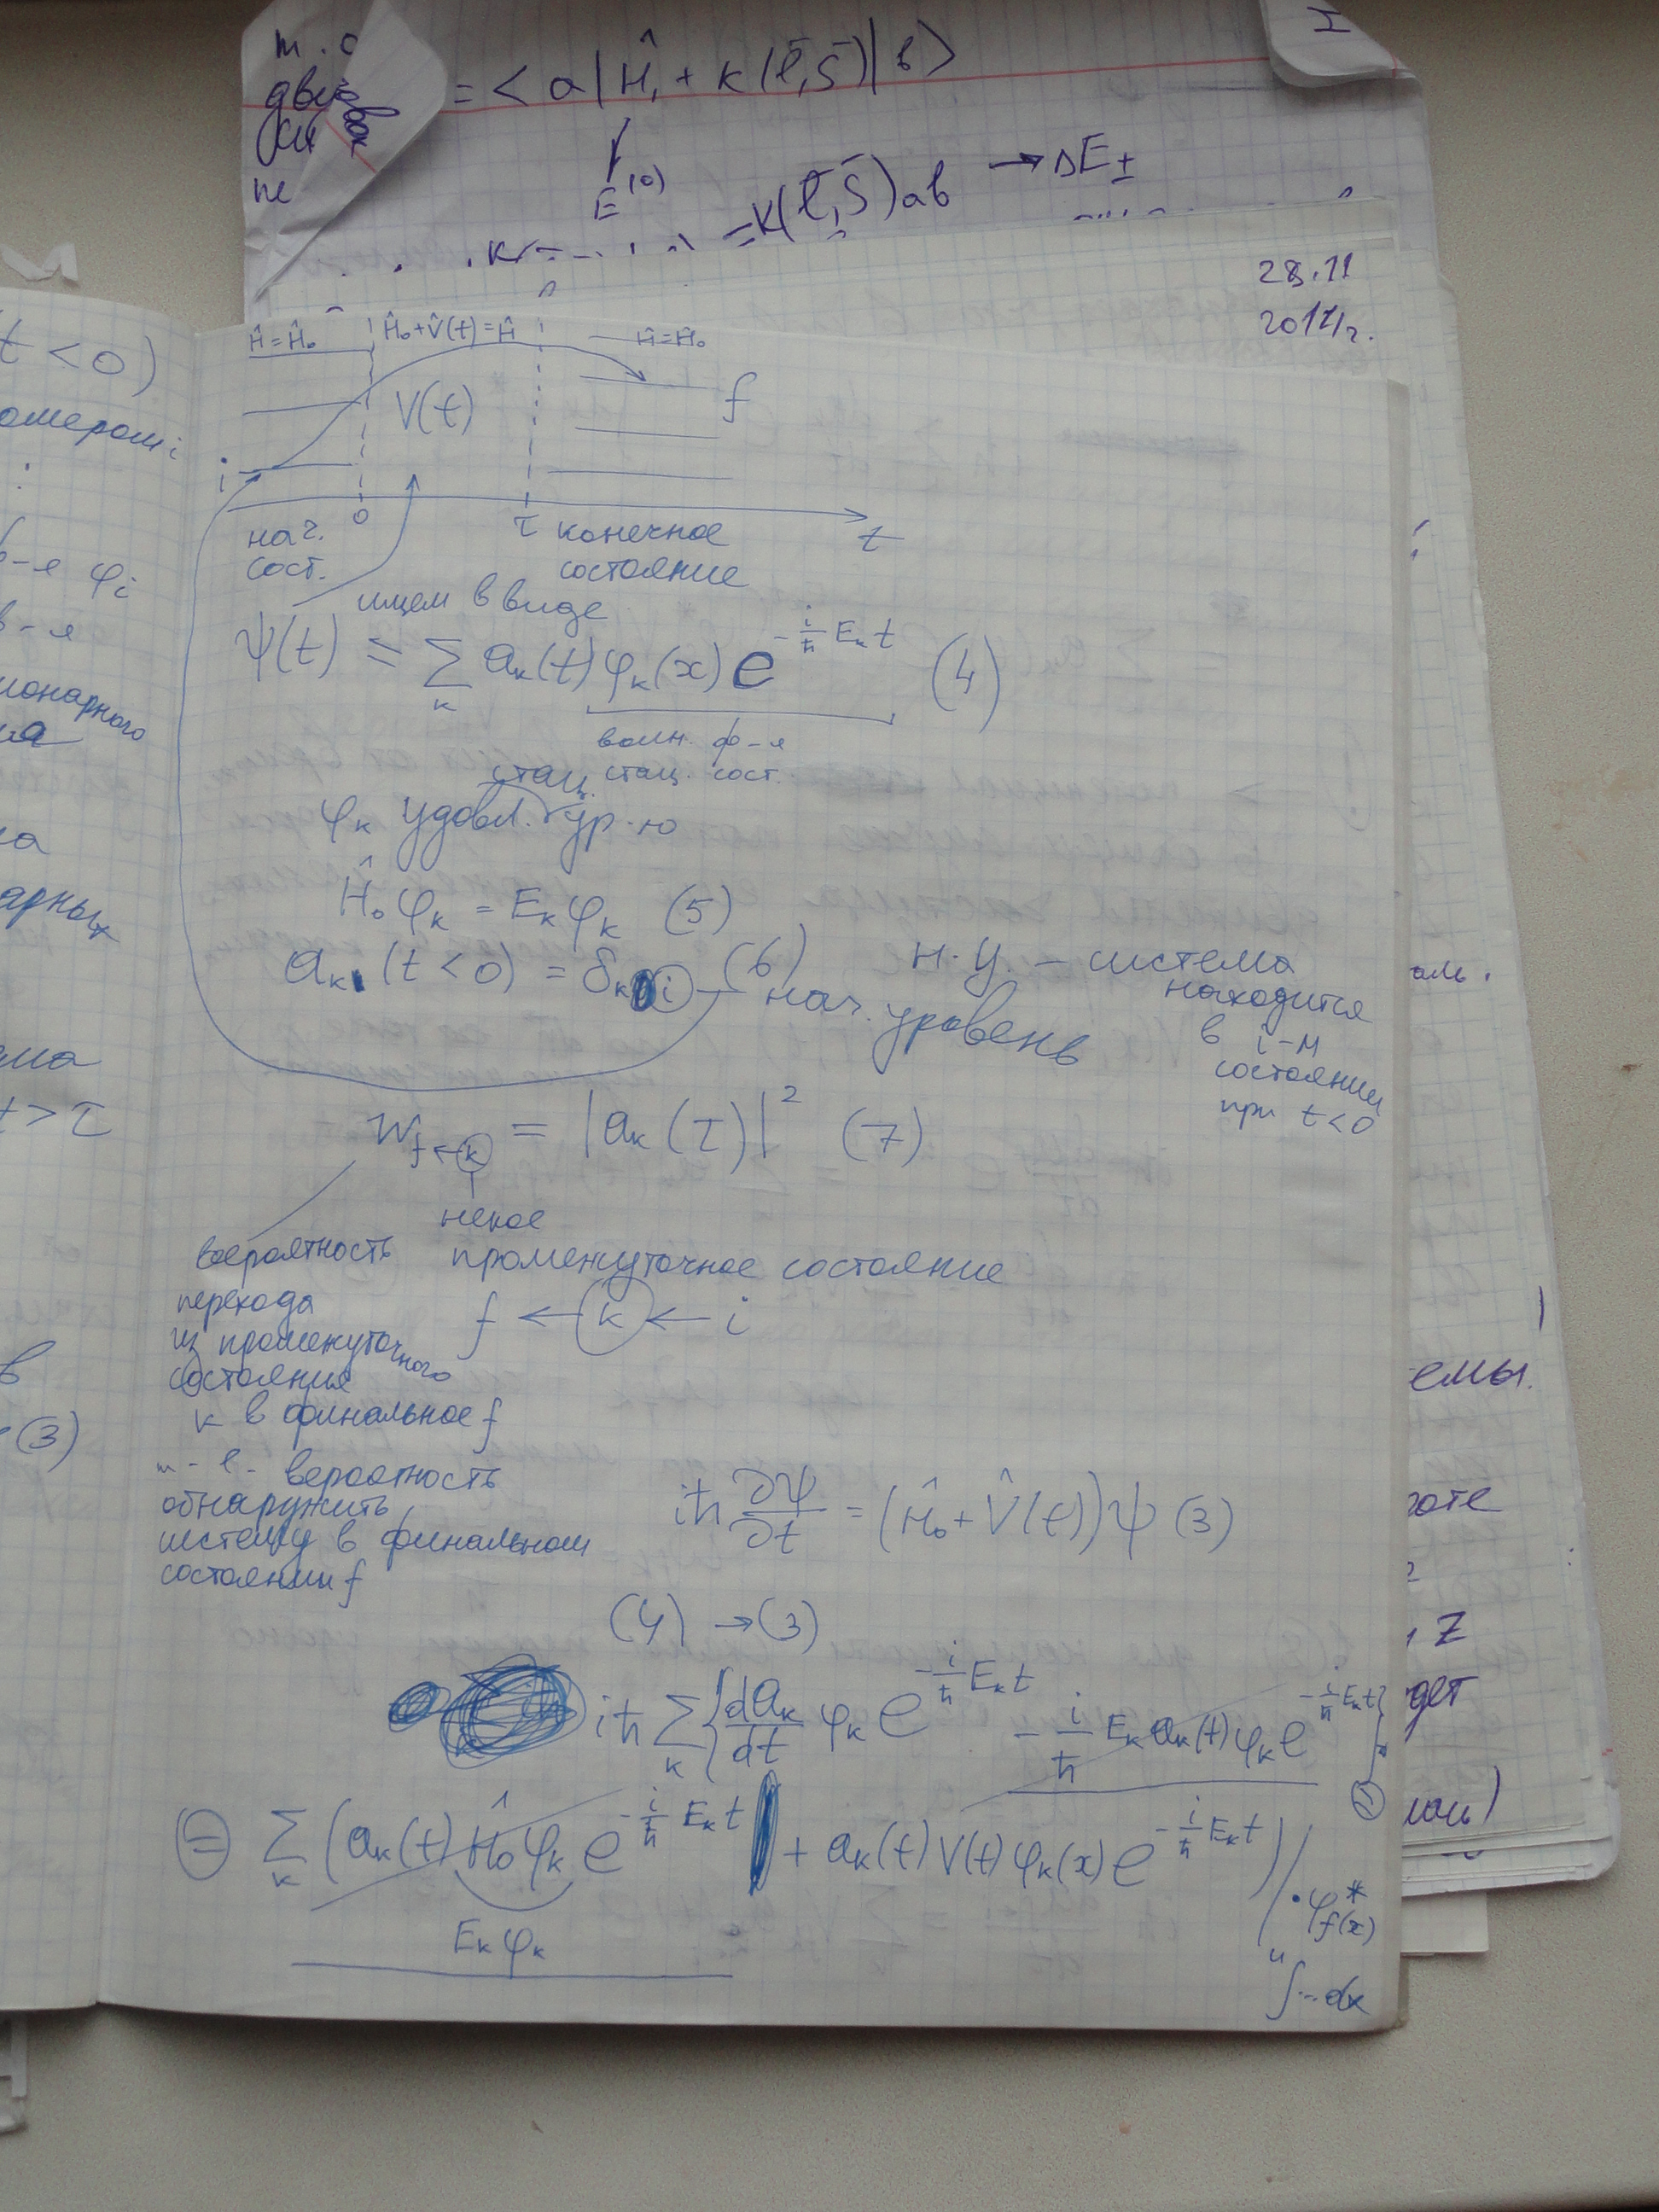 = < a | Ĥ₁ + k(l̄,S̄) | b >
E⁽⁰⁾
= k(l̄,S̄)ab → ΔE±
28.11
t < 0)
Ĥ = Ĥ₀
Ĥ₀ + V̂(t) = Ĥ
Ĥ = Ĥ₀
V(t)
f
i
0
τ
t
нач.
сост.
конечное
состояние
ищем в виде
ψ(t) = ∑ₖ aₖ(t) φₖ(x) e^{-i/ħ Eₖt} (4)
волн. ф-я
стац. сост.
стац.
φₖ удовл. ур-ю
Ĥ₀φₖ = Eₖφₖ (5)
aₖ (t < 0) = δₖᵢ (6)
нач. уровень
н.у. – система
находится
в i-м
состоянии
при t < 0
W_{f←k} = |aₖ(τ)|² (7)
некое
промежуточное состояние
f ← k ← i
воероятность
перехода
из промежуточного
состояния
k в финальное f
вероятность
обнаружить
систему в финальном
состоянии f
iħ ∂ψ/∂t = (Ĥ₀ + V̂(t))ψ (3)
(4) → (3)
iħ ∑ₖ { daₖ/dt φₖ e^{-i/ħ Eₖt} - i/ħ Eₖ aₖ(t) φₖ e^{-i/ħ Eₖt} } =
= ∑ₖ (aₖ(t) Ĥ₀ φₖ e^{-i/ħ Eₖt} + aₖ(t) V(t) φₖ(x) e^{-i/ħ Eₖt}) / · φ*f(x)
Eₖφₖ
и ∫...dx
φᵢ
t > τ
(3)